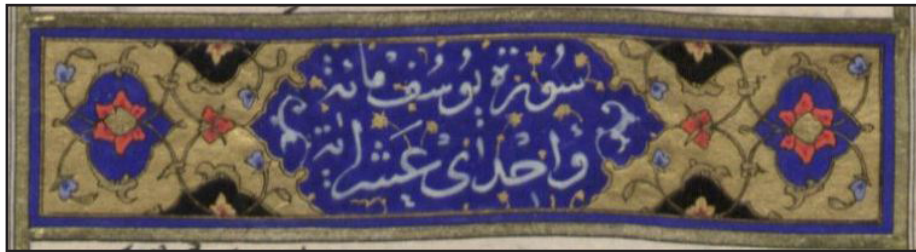 سُورَة يُوسُف مائة
وَاحدى عَشر اية